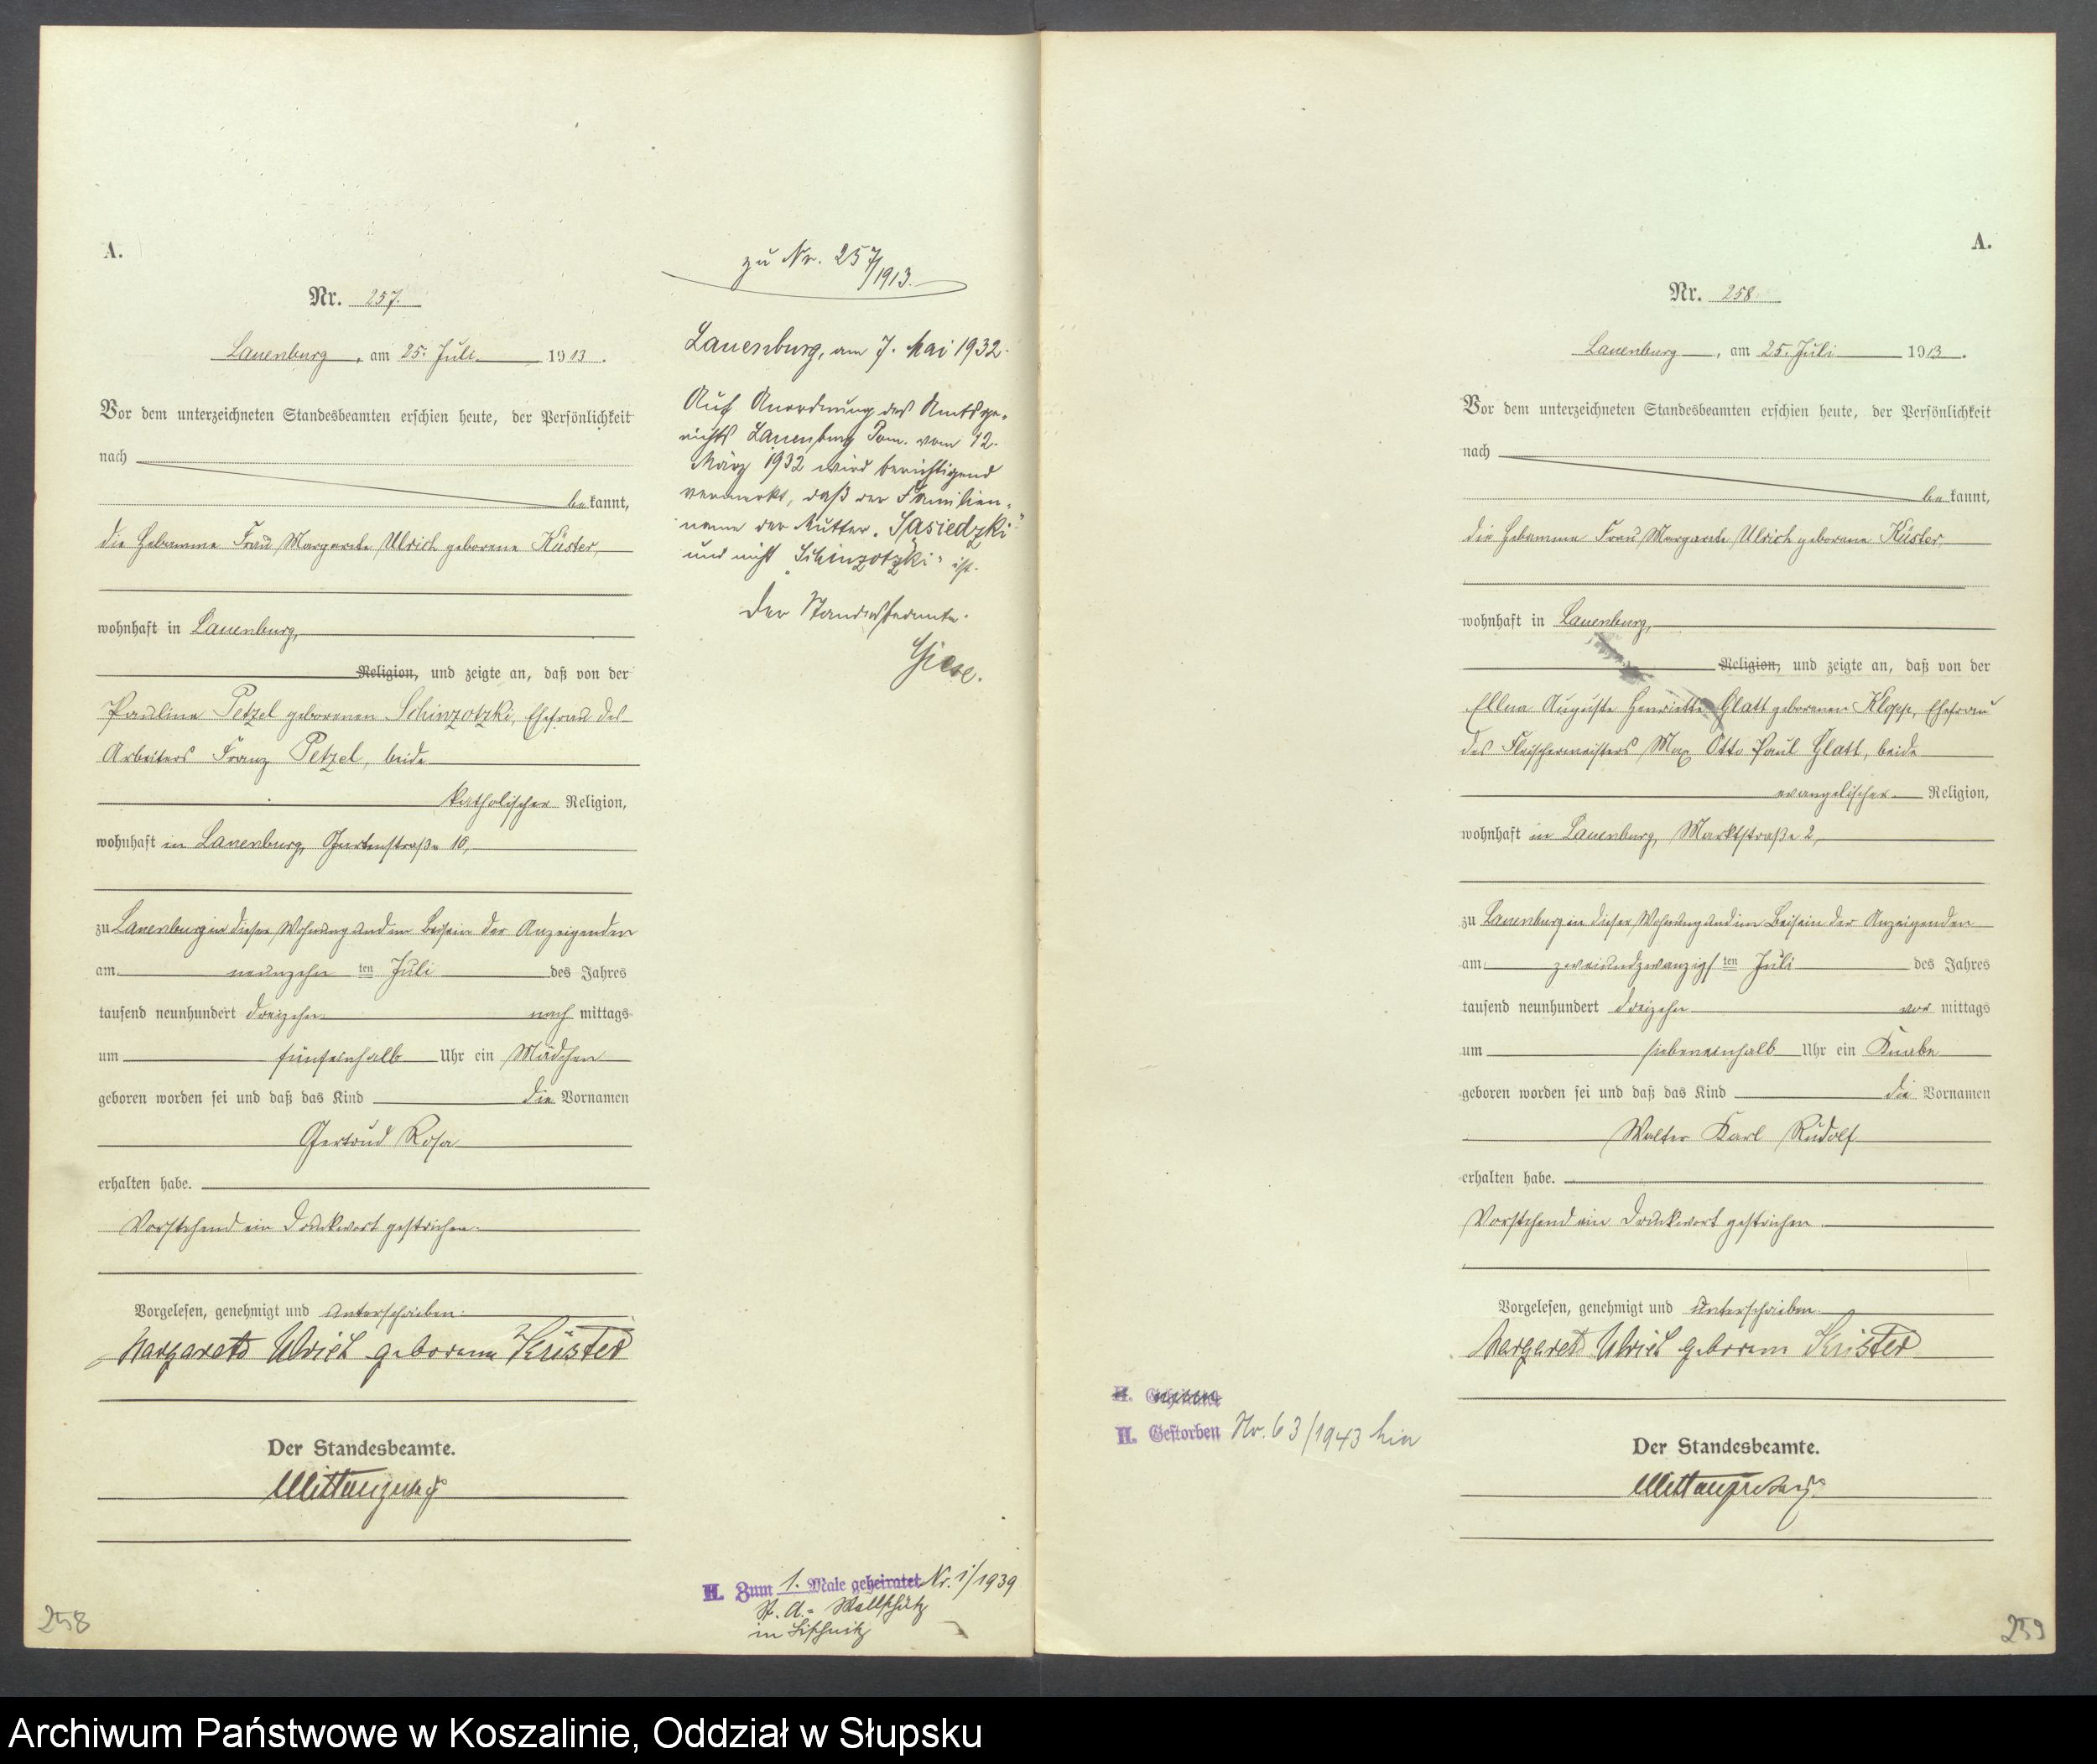 A.
Nr. 257.
Lauenburg, am 25. Juli 1913.
Vor dem unterzeichneten Standesbeamten erschien heute, der Persönlichkeit
nach
bekannt,
die Hebamme Frau Margarete Ulrich geborene Küster,
wohnhaft in Lauenburg,
Religion, und zeigte an, daß von der
Pauline Petzel geborenen Schinzotzki, Ehefrau des
Arbeiters Franz Petzel, beide
katholischer Religion,
wohnhaft in Lauenburg, Gartenstraße 10,
zu Lauenburg in dieser Wohnung und im Beisein der Anzeigenden
am neunzehnten Juli des Jahres
tausend neunhundert dreizehn nachmittags
um fünfeinhalb Uhr ein Mädchen
geboren worden sei und daß das Kind die Vornamen
Gertrud Rosa
erhalten habe.
Vorstehend ein Druckwort gestrichen.
Vorgelesen, genehmigt und unterschrieben.
Margarete Ulrich geborene Küster
Der Standesbeamte.
258
zu Nr. 257/1913.
Lauenburg, am 7. Mai 1932.
Auf Anordnung des Amtsge-
richts Lauenburg Pom. vom 12.
März 1932 wird berichtigend
vermerkt, daß der Familien-
name der Mutter „Sasiedzki“
und nicht „Schinzotzki“ ist.
Der Standesbeamte.
Giese.
H. Zum 1. Male geheiratet Nr. 1/1939
St. A.
in
A.
Nr. 258
Lauenburg, am 25. Juli 1913.
Vor dem unterzeichneten Standesbeamten erschien heute, der Persönlichkeit
nach
bekannt,
die Hebamme Frau Margarete Ulrich geborene Küster,
wohnhaft in Lauenburg,
Religion, und zeigte an, daß von der
Auguste Henriette Glatt geborenen Klopp, Ehefrau
des Fleischermeisters Max Otto Paul Glatt, beide
evangelischer Religion,
wohnhaft in Lauenburg, Marktstraße 2,
zu Lauenburg in dieser Wohnung und im Beisein der Anzeigenden
am zweiundzwanzigsten Juli des Jahres
tausend neunhundert dreizehn vormittags
um siebeneinhalb Uhr ein Knabe
geboren worden sei und daß das Kind die Vornamen
Walter Karl Rudolf
erhalten habe.
Vorstehend ein Druckwort gestrichen.
Vorgelesen, genehmigt und unterschrieben.
Margarete Ulrich geborene Küster
H.
II. Gestorben Nr. 63/1943 hier
Der Standesbeamte.
259
Archiwum Państwowe w Koszalinie, Oddział w Słupsku